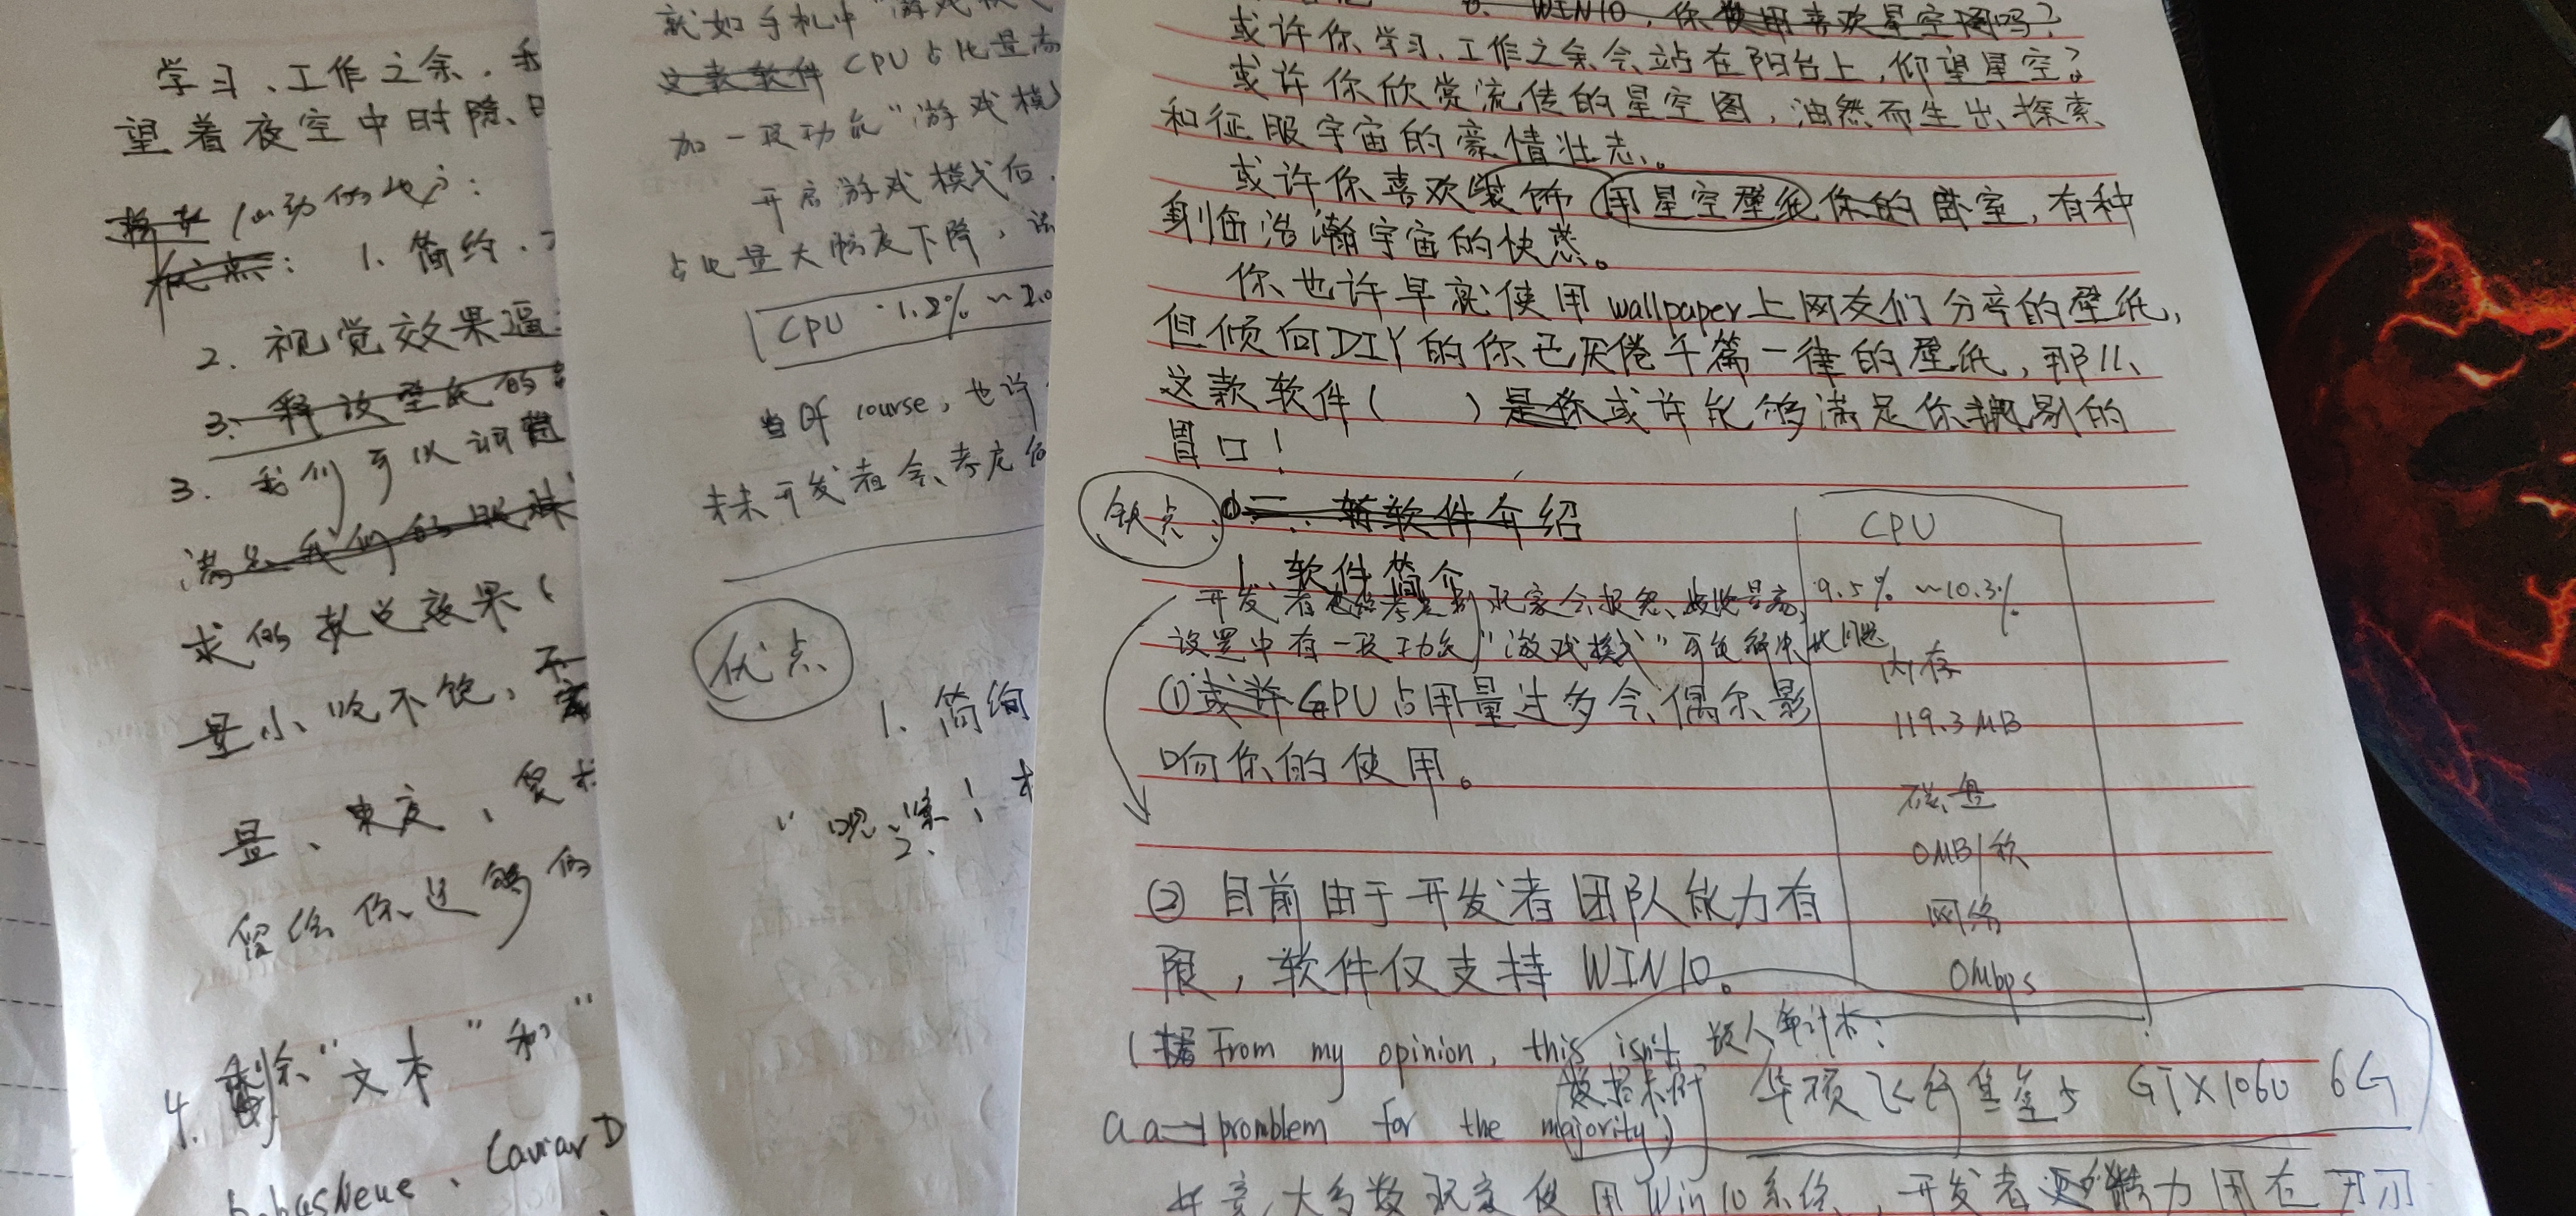 学习、工作之余，我
望着夜空中时隐、
心动的地方：
优点：1、简约、
2. 视觉效果逼
3. 释放壁纸的
3. 我们可以调
满足我们的眼球
求的
量小吃不饱，不
量、速度、
留给你足够的
4. 删除“文本”和“
BebasNeue、CaviarD
就如手机中“游戏模式
这款软件 CPU占比量高
加一段功能“游戏模
开启游戏模式后，
占比量大幅度下降，
CPU 1.2% ~ 2.0
当Of course，也许
未来开发者会考虑
优点
1、简约
WIN10，你使用喜欢星空图吗？
或许你学习、工作之余会站在阳台上，仰望星空？
或许你欣赏流传的星空图，油然而生出探索
和征服宇宙的豪情壮志。
或许你喜欢装饰用星空壁纸你的卧室，有种
身临浩瀚宇宙的快感。
你也许早就使用wallpaper上网友们分享的壁纸，
但倾向DIY的你已厌倦千篇一律的壁纸，那么
这款软件（ ）是你或许能够满足你挑剔的
胃口！
缺点：
二、软件介绍
1、软件简介
开发者也许考虑到玩家会抱怨、占比量高，
设置中有一段功能“游戏模式”可能解决此问题
①或许CPU占用量过多会偶尔影
响你的使用。
CPU
9.5% ~10.3%
内存
119.3MB
磁盘
0MB/秒
网络
0Mbps
②目前由于开发者团队能力有
限，软件仅支持WIN10。
(From my opinion, this isn't
a a promblem for the majority)
数据来源
敝人笔记本：
华硕飞行堡垒5 GTX1060 6G
毕竟，大多数玩家使用Win10系统，开发者还精力用在开